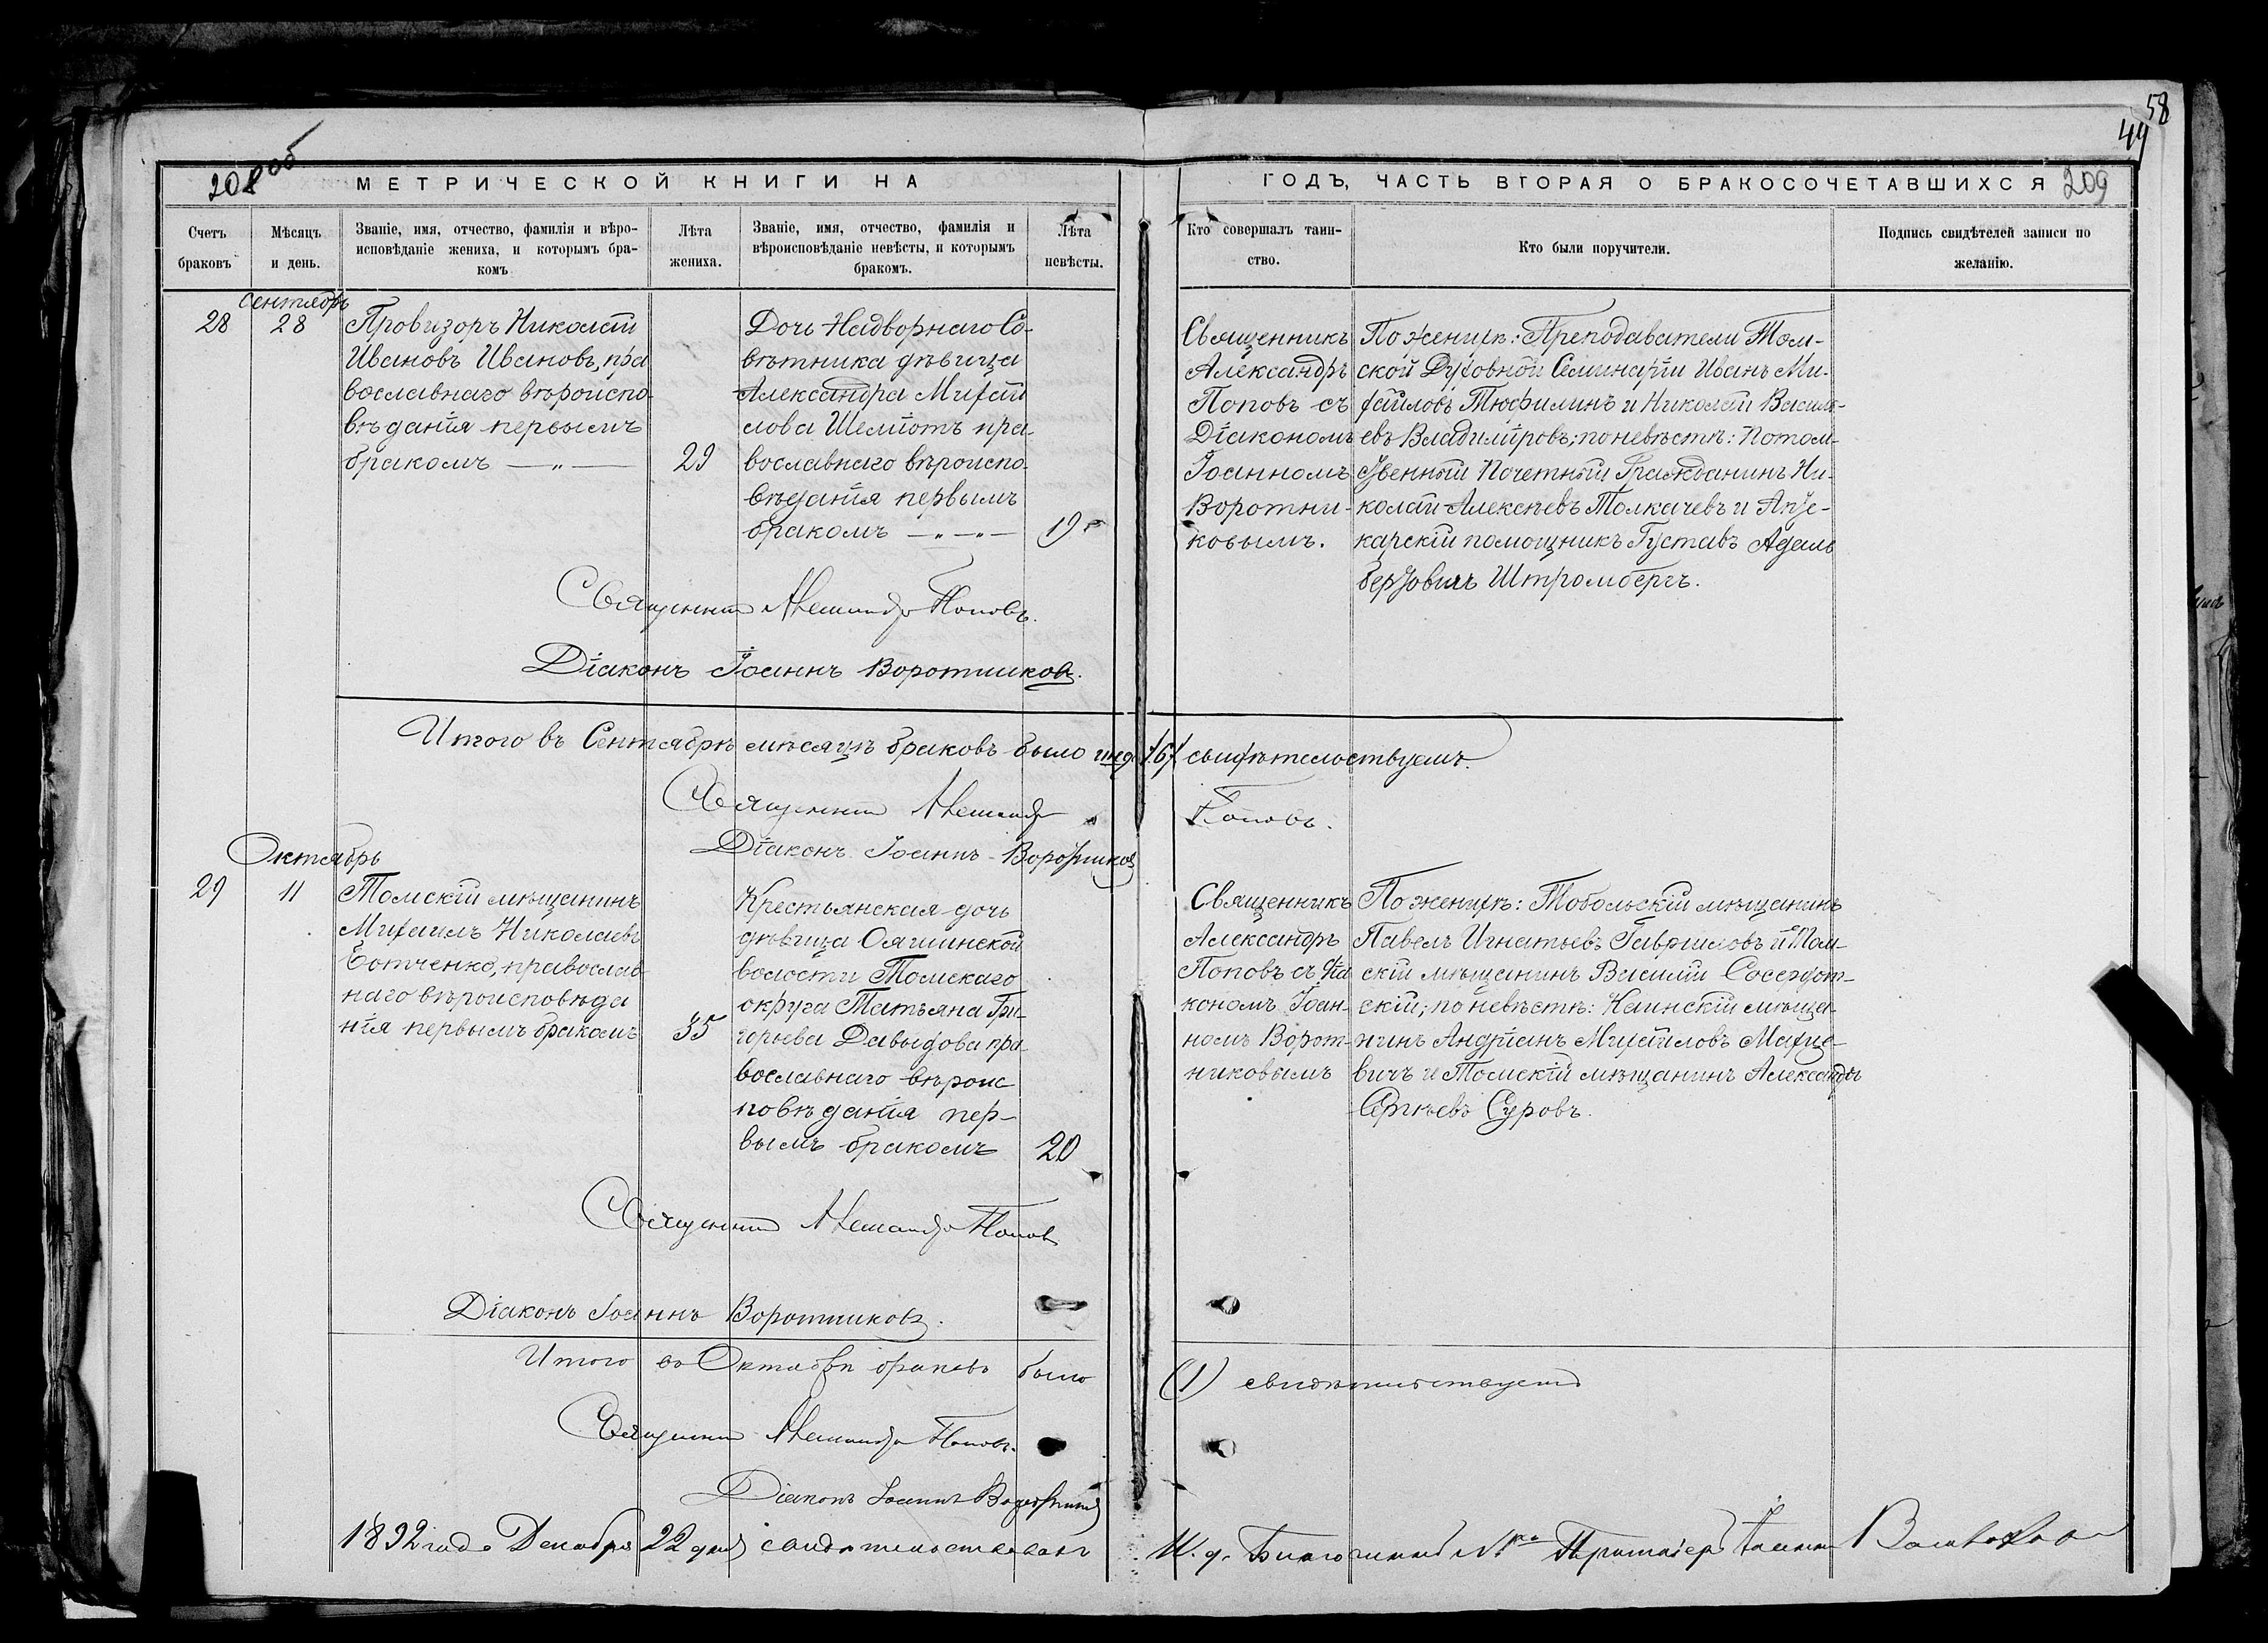 58
44
208 об
МЕТРИЧЕСКОЙ КНИГИ НА
ГОДЪ, ЧАСТЬ ВТОРАЯ О БРАКОСОЧЕТАВШИХСЯ
209
Счетъ
браковъ
Мѣсяцъ
и день.
Званіе, имя, отчество, фамилія и вѣро-
исповѣданіе жениха, и которымъ бра-
комъ
Лѣта
жениха.
Званіе, имя, отчество, фамилія и
вѣроисповѣданіе невѣсты, и которымъ
бракомъ.
Лѣта
невѣсты.
Кто совершалъ таин-
ство.
Кто были поручители.
Подпись свидѣтелей записи по
желанію.
Сентябрь
28
28
Провизоръ Николай
Ивановъ Ивановъ, пра
вославнаго вѣроиспо-
вѣданія первымъ
бракомъ — „ —
29
Дочь Надворнаго Со-
вѣтника дѣвица
Александра Михай
лова
пра-
вославнаго вѣроиспо-
вѣданія первымъ
бракомъ — „ — „ —
19
Священникъ
Александръ
Поповъ съ
Діакономъ
Іоанномъ
Воротни-
ковымъ.
По женихѣ: Преподаватели Том-
ской Духовной Семинаріи Иванъ Ми-
хайловъ Тюфилинъ и Николай Василь-
евъ Владиміровъ; по невѣстѣ: Потом-
ственный Почетный Гражданинъ Ни-
колай Алексѣевъ Толкачевъ и Апте-
карскій помощникъ Густавъ Адаль
бертовичъ Штромбергъ.
Священникъ Александръ Поповъ.
Діаконъ Іоаннъ Воротниковъ.
Итого въ Сентябрѣ мѣсяцѣ браковъ было
/6/ свидѣтельствуемъ.
Священникъ Александръ
Поповъ.
Діаконъ Іоаннъ Воротниковъ
Октябрь
29
11
Томскій мѣщанинъ
Михаилъ Николаевъ
Ботченко, православ
наго вѣроисповѣда
нія первымъ бракомъ
35
Крестьянская дочь
дѣвица Ояшинской
волости Томскаго
округа Татьяна Гри-
горьева Давыдова пра-
вославнаго вѣроис
повѣданія пер-
вымъ бракомъ
20
Священникъ
Александръ
Поповъ съ Діа
кономъ Іоан-
номъ Ворот-
никовымъ
По женихѣ: Тобольскій мѣщанинъ
Павелъ Игнатьевъ Гавриловъ и Том-
скій мѣщанинъ Василій
скій; по невѣстѣ: Каинскій мѣща-
нинъ Андріанъ Михайловъ Мацке-
вичъ и Томскій мѣщанинъ Александръ
Сергѣевъ Суровъ.
Священникъ Александръ Поповъ
Діаконъ Іоаннъ Воротниковъ.
Итого въ Октябрѣ браковъ было
(1) свидѣтельствуемъ
Священникъ Александръ Поповъ.
Діаконъ Іоаннъ Воротниковъ
1892 года Декабря 22 дня свидѣтельствовалъ
И. д. Благочиннаго № 1го Протоіерей